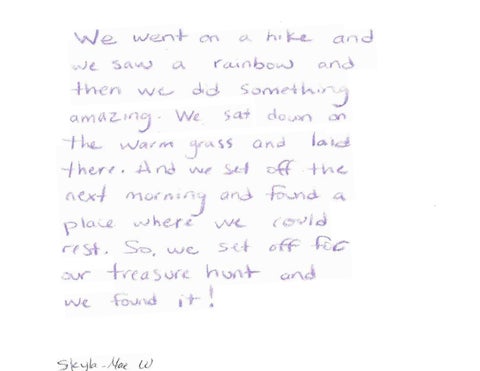 We went on a hike and
we saw a rainbow and
then we did something
amazing. We sat down on
the warm grass and laid
there. And we set off the
next morning and found a
place where we could
rest. So, we set off for
our treasure hunt and
we found it!
Skyla-Mae W